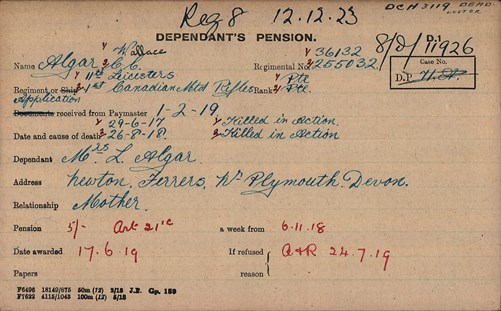 Reg 8 12.12.23 DCH 3119 DEAD.
DEPENDANT'S PENSION.
8/D/11926 D.1
Name Algar 1/ Wallace 2/ C.C. Regimental No. 1/ 36132 2/ 255032 Case No.
Regiment or Ship 1/ 11th Leicesters 2/ 1st Canadian Mtd Rifles Rank 1/ Pte 2/ Pte. D.P.
Application
Documents received from Paymaster 1-2-19.
Date and cause of death 1/ 29-6-17 1/ Killed in Action
2/ 26-8-18. 2/ Killed in Action
Dependant Mrs L. Algar.
Address Newton, Ferrers, Nr Plymouth. Devon.
Relationship Mother.
Pension 5/- Art 21c a week from 6.11.18
Date awarded 17.6.19 If refused A&R 24.7.19
Papers reason
F6496 18140/675 50m (12) 3/18 J.P. Gp. 159
F7622 4115/1043 100m (12) 5/18